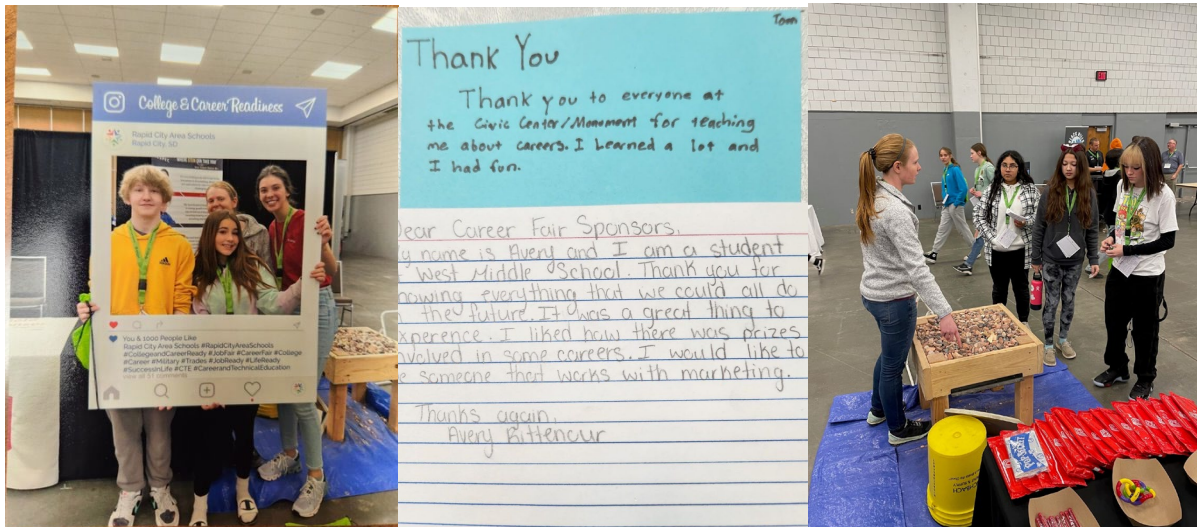 College & Career Readiness
Rapid City Area Schools
Rapid City, SD
You & 1000 People Like
Rapid City Area Schools #RapidCityAreaSchools
#CollegeandCareerReady #JobFair #CareerFair #College
#Career #Military #Trades #JobReady #LifeReady
#SuccessInLife #CTE #CareerandTechnicalEducation
Tom
Thank You
Thank you to everyone at
the Civic Center/Monument for teaching
me about careers. I Learned a lot and
I had fun.
Dear Career Fair Sponsors,
name is Avery and I am a student
West Middle School. Thank you for
everything that we could all do
the future. It was a great thing to
I liked how there was prizes
in some careers. I would like to
someone that works with marketing.
Thanks again,
Avery Bittencur
EXIT